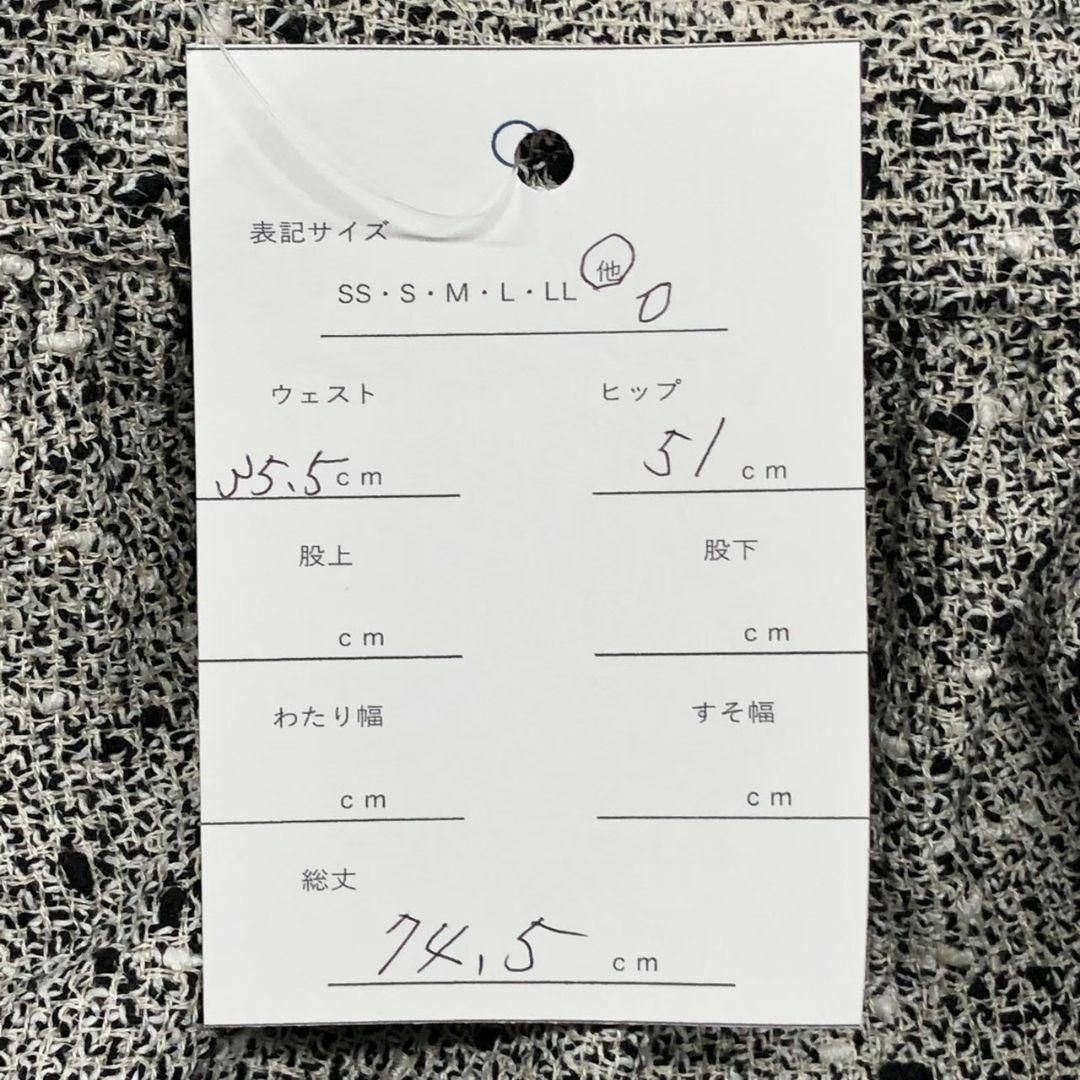 表記サイズ
SS・S・M・L・LL 他 0
ウェスト ヒップ
35.5cm 51 cm
股上 股下
cm cm
わたり幅 すそ幅
cm cm
総丈
74.5 cm